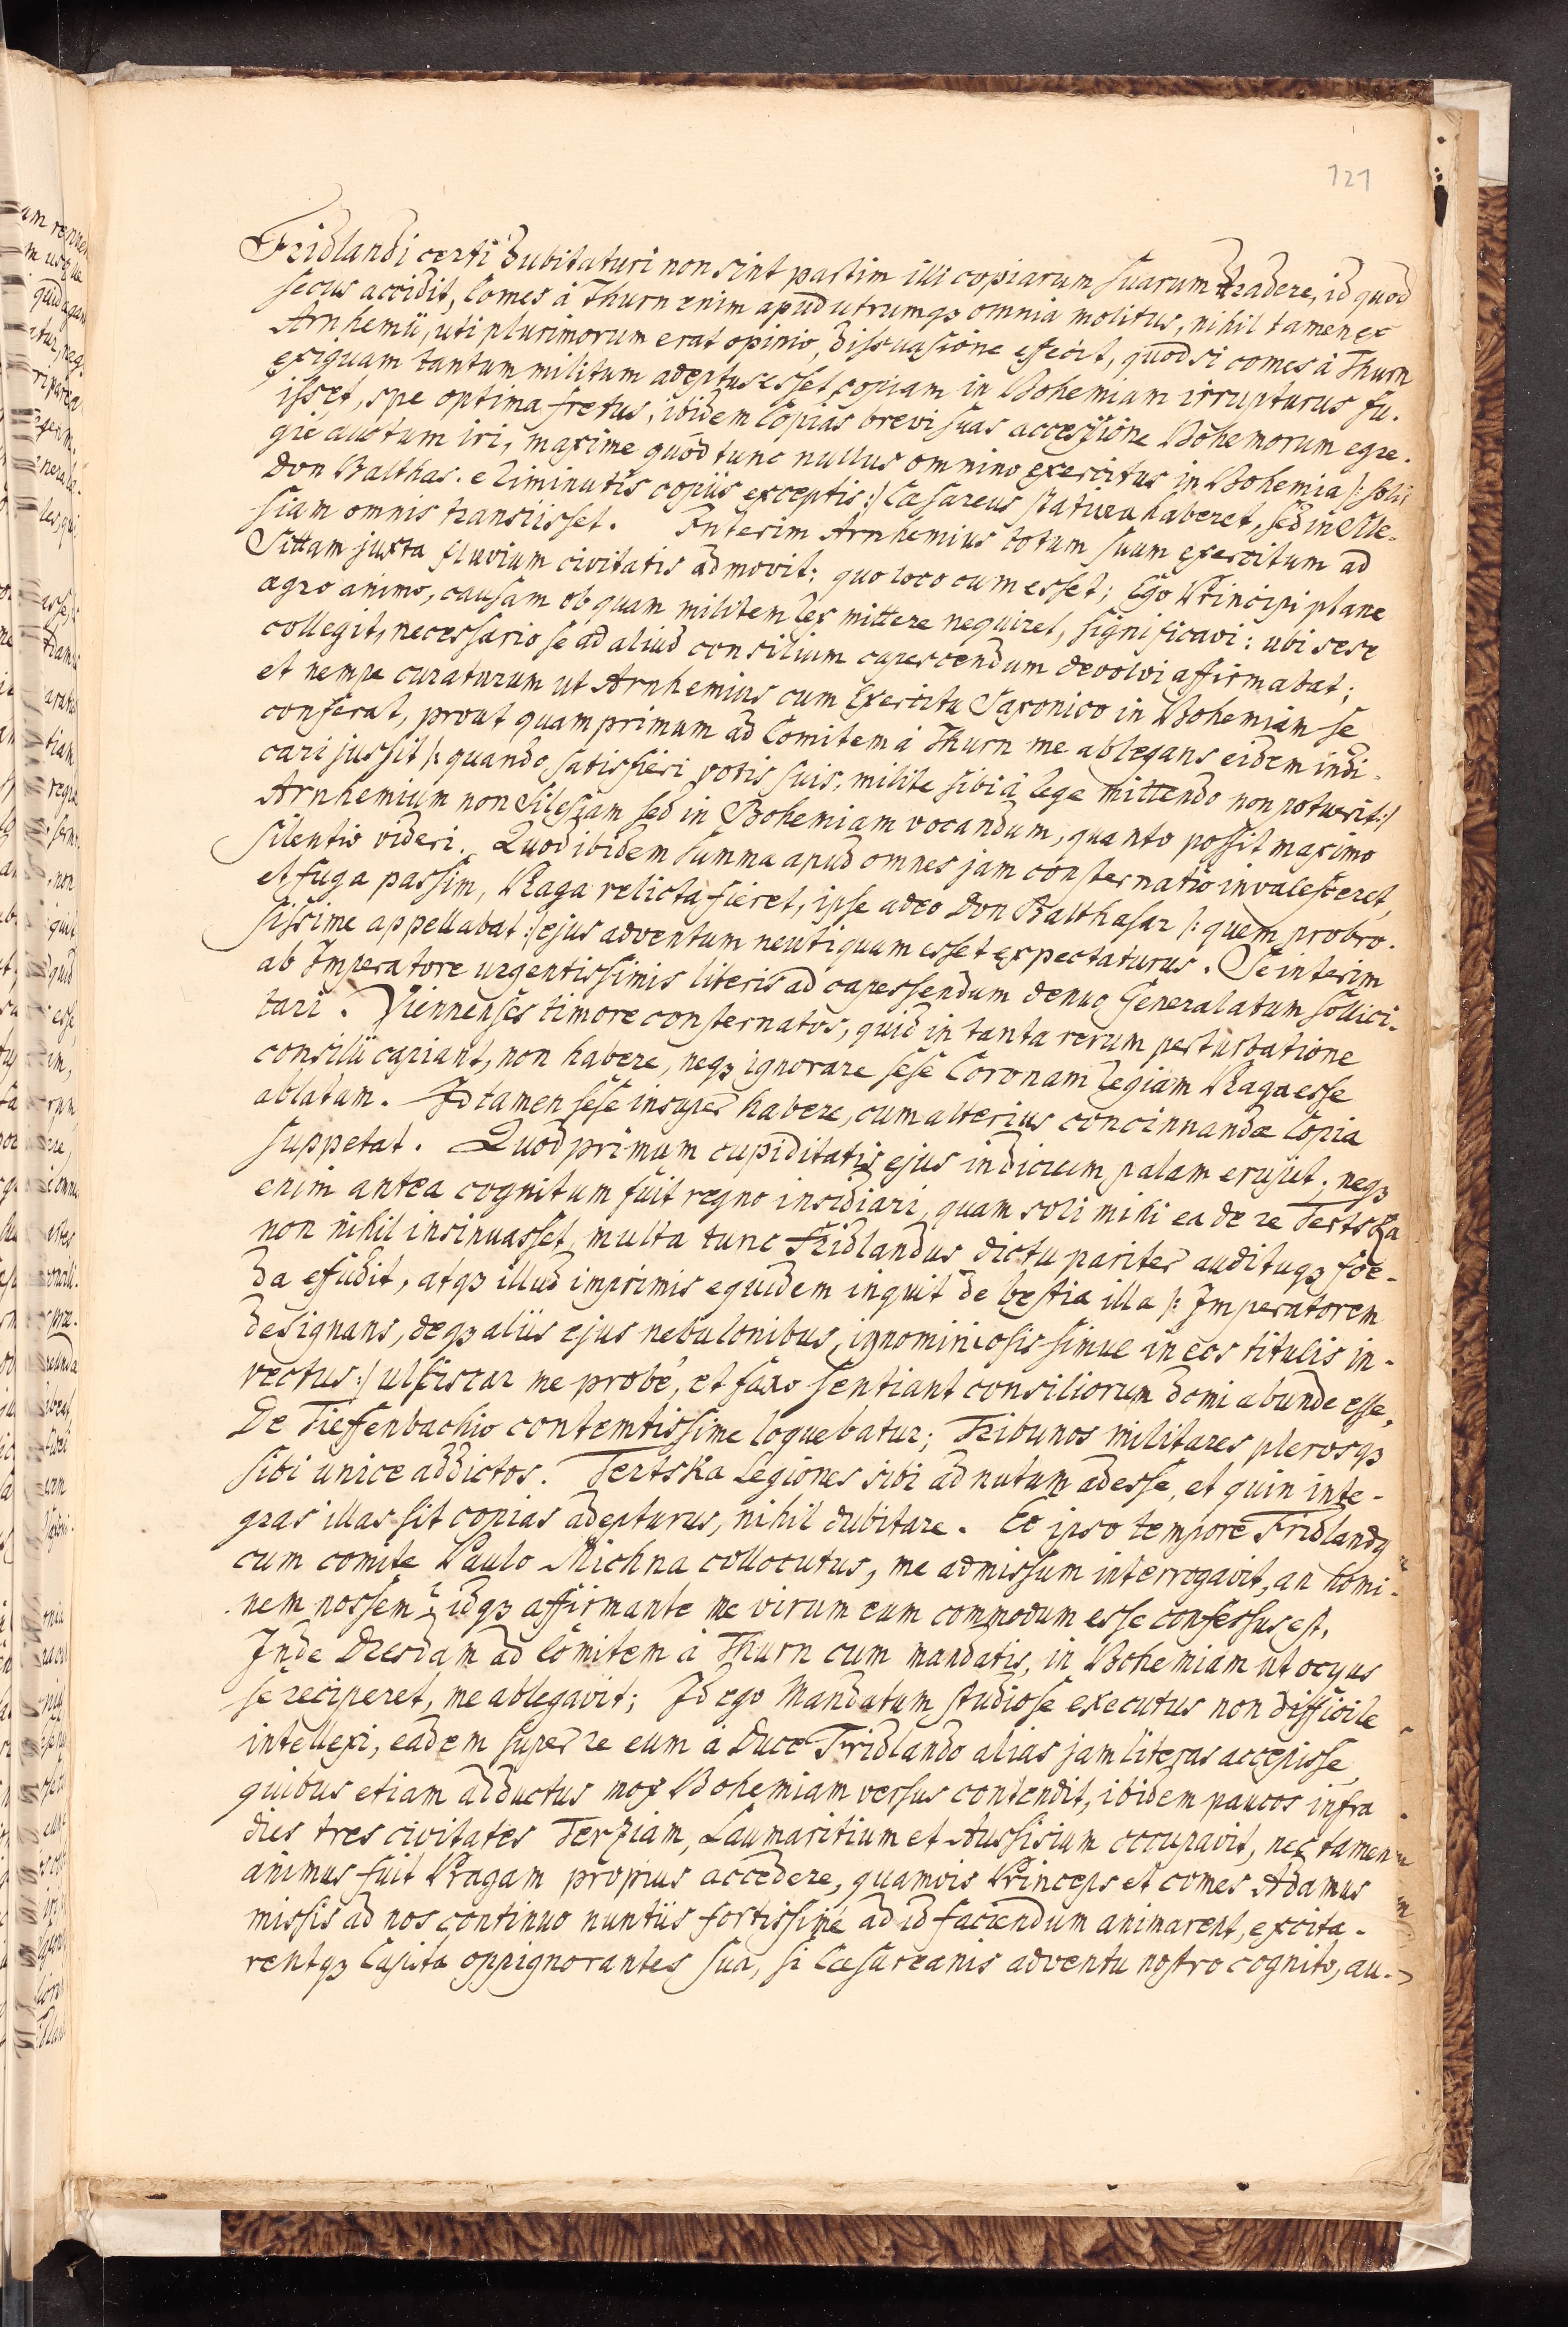 121
Fridlandi certi dubitaturi non sint partim illi copiarum suarum tradere, id quod
secus accidit, Comes à Thurn enim apud utrumqꝫ omnia molitus, nihil tamen ex
Arnhemii, uti plurimorum erat opinio, dissuasione effecit, quod si comes à Thurn
exiguam tantum militum adeptus esset copiam in Bohemiam irrupturus fu-
isset, spe optima fretus, ibidem Copias brevi suas accessione Bohemorum egre-
gie auctum iri, maxime quod tunc nullus omnino exercitus in Bohemia /: solis
Don Balthas. eliminutis copiis exceptis :/ Cæsareus stativa haberet, sed in Sile-
siam omnis transiisset. Interim Arnhemius totum suum exercitum ad
Sittam juxta fluvium civitatis admovit: quo loco cum esset; Ego Principi plane
ægro animo, causam ob quam militem Rex mittere nequiret, significavi: ubi sese
collegit, necessario se ad aliud consilium capescendum devolvi affirmabat;
et nempe curaturum ut Arnhemius cum Exercitu Saxonico in Bohemiam se
conferat, prout quamprimum ad Comitem à Thurn me ablegans eidem indi-
cari jussit /: quando satisfieri votis suis, milite sibi à Rege mittendo non potuerit :/
Arnhemium non Silesiam sed in Bohemiam vocandum, quanto possit maximo
silentio videri. Quod ibidem summa apud omnes jam consternatio invalesceret,
et fuga passim, Praga relicta fieret, ipse adeo Don Balthasar /: quem probro-
sissime appellabat :/ ejus adventum neutiquam esset expectaturus. Se interim
ab Imperatore urgentissimis literis ad capessendum denuo Generalatum sollici-
tari. Viennenses timore consternatos, quid in tanta rerum perturbatione
consilii capiant, non habere, neqꝫ ignorare sese Coronam Regiam Praga esse
ablatam. Id tamen sese insuper habere, cum alterius concinnandæ Copia
suppetat. Quod primum cupiditatis ejus indicium palam erupit, neqꝫ
enim antea cognitum fuit regno insidiari, quam soli mihi ea de re Tertska
non nihil insinuasset, multa tunc Fridlandus dictu pariter audituqꝫ foe-
da effudit, atqꝫ illud imprimis equidem inquit de bestia illa /: Imperatorem
designans, deqꝫ aliis ejus nebulonibus, ignominiosissimue in eos titulis in-
vectus :/ ulsiscar me probe, et faxo sentiant consiliorum domi abunde esse,
De Tieffenbachio contemtissime loquebatur; Tribunos militares plerosqꝫ
sibi unice addictos. Tertska Legiones sibi ad nutum adesse, et quin inte-
gras illas sit copias adepturus, nihil dubitare. Eo ipso tempore Fridlandꝰ
cum comite Paulo Michna collocutus, me admissum interrogavit, an homi-
nem nossem? idqꝫ affirmante me virum eum commodum esse confessus est,
Inde Dresdam ad Comitem à Thurn cum mandatis, in Bohemiam ut ocyus
se reciperet, me ablegavit; Id ego Mandatum studiose executus non difficile
intellexi, eadem super re eum à Duce Fridlando alias jam literas accepisse,
quibus etiam adductus mox Bohemiam versus contendit, ibidem paucos infra
dies tres civitates Terziam, Laumaritium et Aussisium occupavit, nec tamen
animus fuit Pragam propius accedere, quamvis Princeps et comes Adamus
missis ad nos continuo nuntiis fortissime ad id faciendum animarent, excita-
rentqꝫ Capita oppignorantes sua, si Cæsareanis adventu nostro cognito, au-